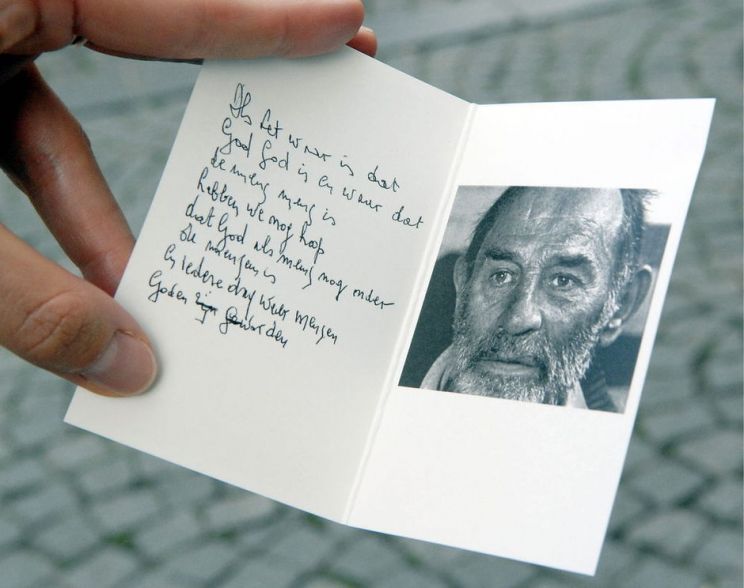 Als het waar is dat
God God is en waar dat
de mens mens is
hebben we nog hoop
dat God als mens nog onder
de mensen is
en iedere dag weer mensen
Goden zijn geworden